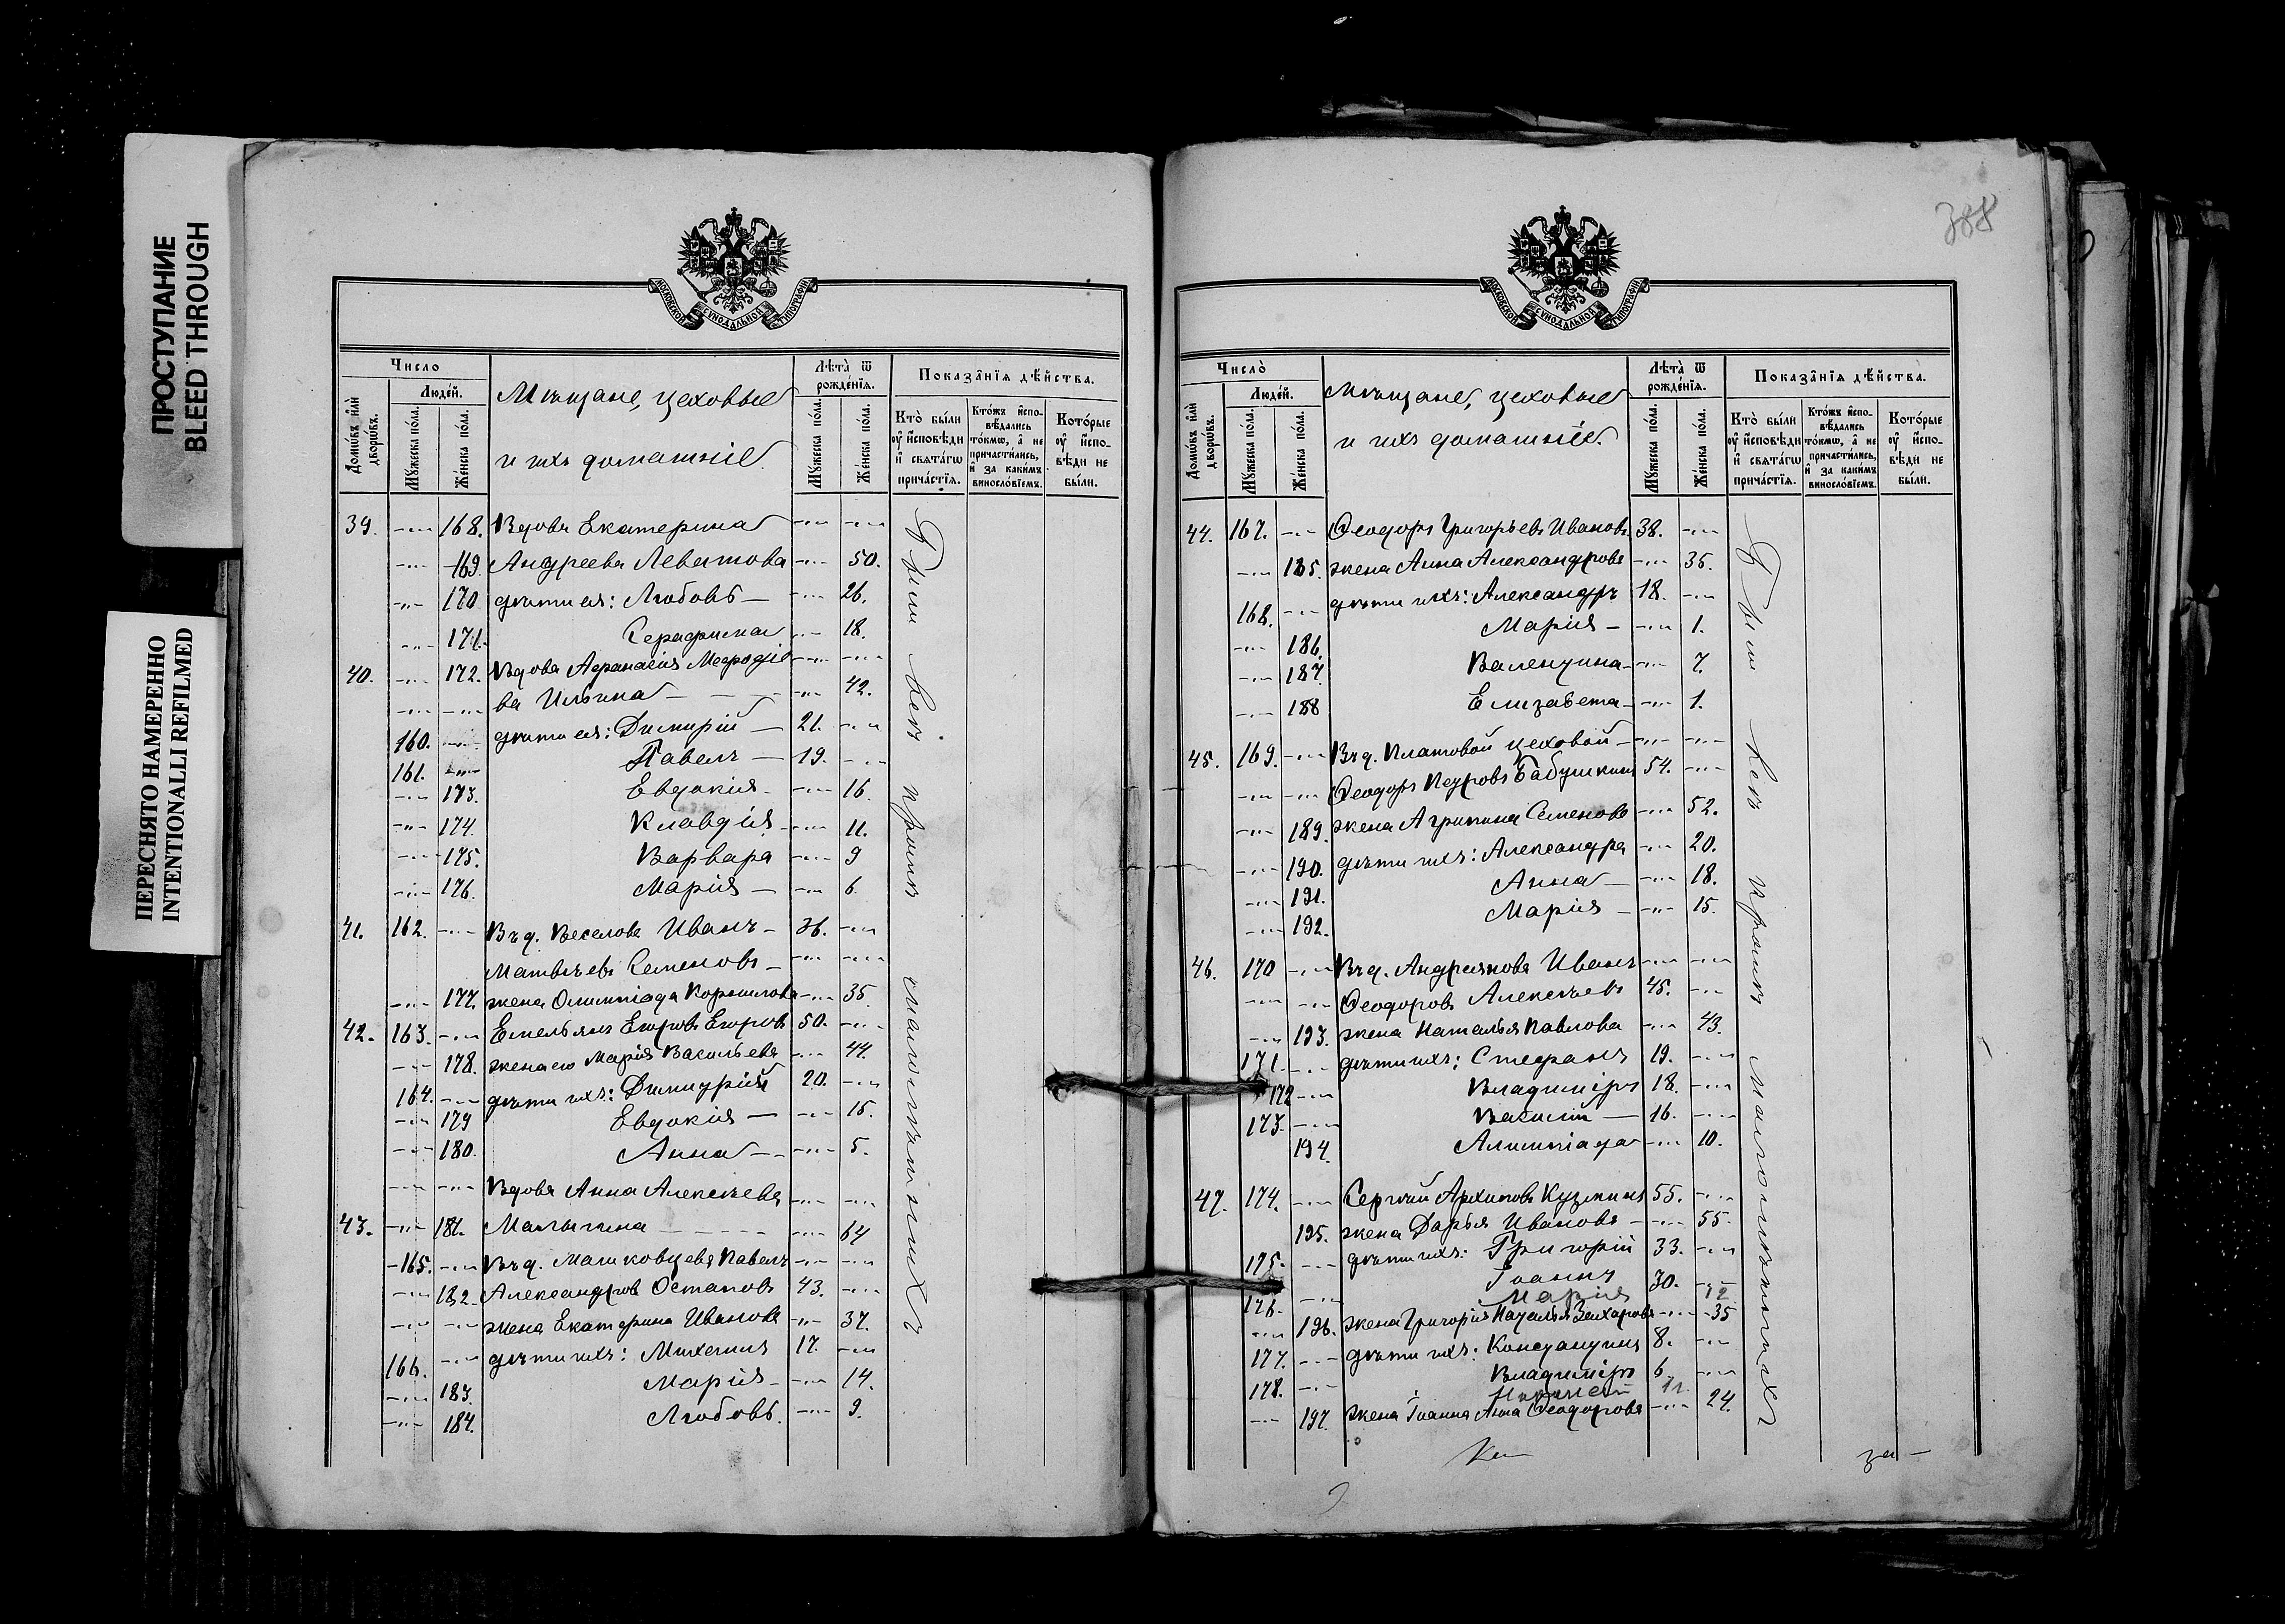 ПРОСТУПАНИЕ
BLEED THROUGH
ПЕРЕСНЯТО НАМЕРЕННО
INTENTIONALLI REFILMED
МОСКОВСКОЙ СУНОДАЛЬНОЙ ТИПОГРАФІИ
Число
Людей.
Домѡвъ или дворѡвъ.
Мужеска пола.
Женска пола.
Мѣщане, цеховые
и ихъ домашніе.
Лѣта ѿ рожденія.
Мужеска пола.
Женска пола.
Показанія дѣйства.
Кто были у исповѣди и святагѡ причастія.
Ктожъ исповѣдались токмѡ, а не причастились, и за какимъ винословіемъ.
Которые у исповѣди не были.
39. 168. Вдова Екатерина
169. Андреева Леватова 50.
170 дѣти ея: Любовь 26.
171. Серафима 18.
40. 172. Вдова Афанасія Мефодіе
ва Ильина 42.
160. дѣти ея: Димитрій 21.
161. Павелъ 19.
173. Евдокія 16.
174. Клавдія 11.
175. Варвара 9
176. Марія 6.
41. 162. Въ д. Веселова Иванъ 36.
Матвѣевъ Семеновъ
177. жена Олимпіада Корнилова 35.
42. 163. Емельянъ Егоровъ Егоровъ 50.
178. жена его Марія Васильева 44.
164. дѣти ихъ: Димитрій 20.
179 Евдокія 15.
180. Анна 5.
Вдова Анна Алексѣева
43. 181. Малыгина 64
165. Въ д. Машковцева Павелъ
182. Александровъ Остаповъ 43.
жена Екатерина Иванова 37.
166. дѣти ихъ: Михаилъ 17.
183. Марія 14.
184. Любовь. 9.
Были всѣ кромѣ малолѣтнихъ
388
МОСКОВСКОЙ СУНОДАЛЬНОЙ ТИПОГРАФІИ
Число
Людей.
Домѡвъ или дворѡвъ.
Мужеска пола.
Женска пола.
Мѣщане, цеховые
и ихъ домашніе.
Лѣта ѿ рожденія.
Мужеска пола.
Женска пола.
Показанія дѣйства.
Кто были у исповѣди и святагѡ причастія.
Ктожъ исповѣдались токмѡ, а не причастились, и за какимъ винословіемъ.
Которые у исповѣди не были.
44. 167. Ѳеодоръ Григорьевъ Ивановъ 38.
185. жена Анна Александрова 35.
168. дѣти ихъ: Александръ 18.
186. Марія 1.
187. Валентина 7.
188 Елизавета 1.
45. 169. Въ д. Платовой цеховой
Ѳеодоръ Петровъ Бабушкинъ 54.
189. жена Агрипина Семенова 52.
190. дѣти ихъ: Александра 20.
191. Анна 18.
192. Марія 15.
46. 170 Въ д. Андріянова Иванъ
Ѳеодоровъ Алексѣевъ 45.
193. жена Наталья Павлова 43.
171. дѣти ихъ: Стефанъ 19.
172 Владиміръ 18.
173. Василій 16.
194. Алимпіада 10.
47. 174. Сергѣй Архиповъ Кузминъ 55.
195. жена Дарья Иванова 55.
175. дѣти ихъ: Григорій 33.
176. Іоаннъ 30.
Марія 12
196. жена Григорія Наталья Захарова 35
177. дѣти ихъ: Константинъ 8.
178. Владиміръ 6.
Николай 11.
197. жена Іоанна Анна Ѳеодорова 24.
Были всѣ кромѣ малолѣтнихъ
за